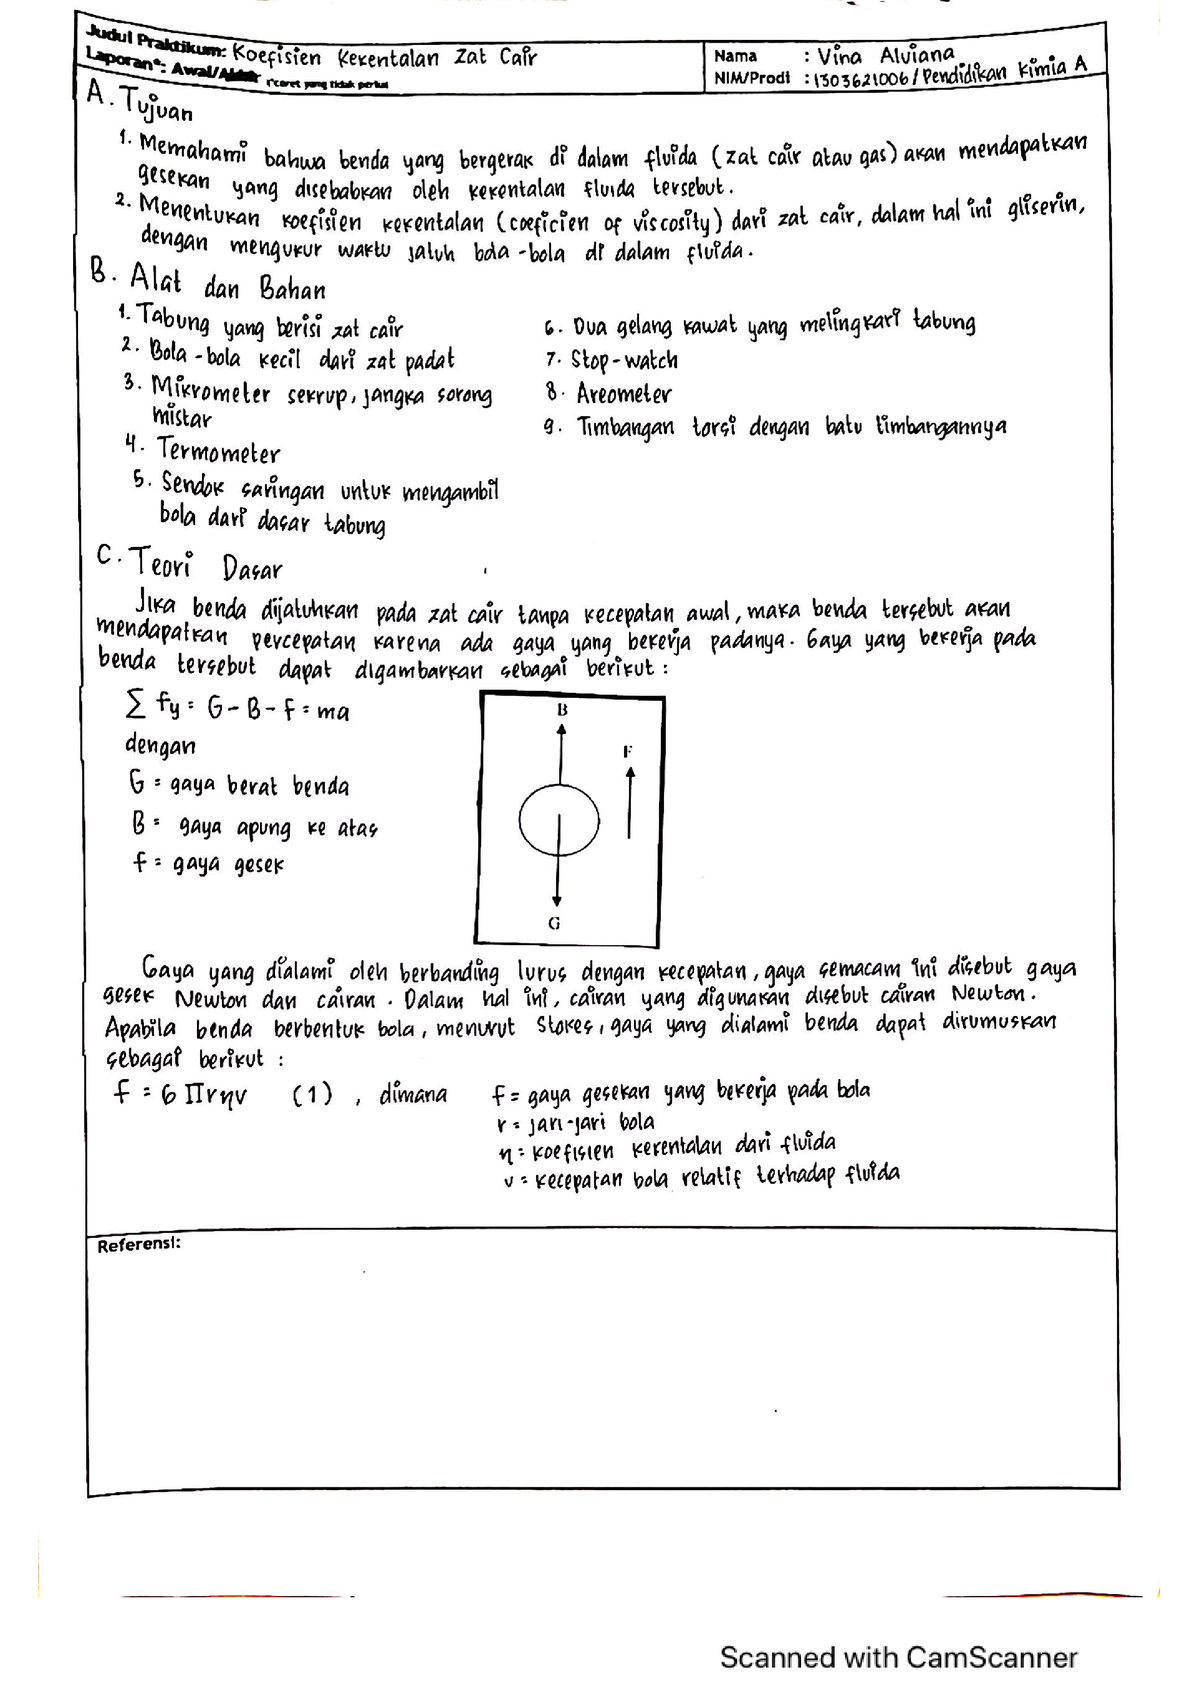 Judul Praktikum: Koefisien Kekentalan Zat Cair
Laporan*: Awal/Akhir *coret yang tidak perlu
Nama : Vina Alviana
NIM/Prodi : 1303621006 / Pendidikan Kimia A
A. Tujuan
1. Memahami bahwa benda yang bergerak di dalam fluida (zat cair atau gas) akan mendapatkan
gesekan yang disebabkan oleh kekentalan fluida tersebut.
2. Menentukan koefisien kekentalan (coeficien of viscosity) dari zat cair, dalam hal ini gliserin,
dengan mengukur waktu jatuh bola-bola di dalam fluida.
B. Alat dan Bahan
1. Tabung yang berisi zat cair
2. Bola-bola kecil dari zat padat
3. Mikrometer sekrup, jangka sorong
mistar
4. Termometer
5. Sendok saringan untuk mengambil
bola dari dasar tabung
6. Dua gelang kawat yang melingkari tabung
7. Stop-watch
8. Areometer
9. Timbangan torsi dengan batu timbangannya
C. Teori Dasar
Jika benda dijatuhkan pada zat cair tanpa kecepatan awal, maka benda tersebut akan
mendapatkan percepatan karena ada gaya yang bekerja padanya. Gaya yang bekerja pada
benda tersebut dapat digambarkan sebagai berikut :
∑ fy = G - B - f = ma
dengan
G = gaya berat benda
B = gaya apung ke atas
f = gaya gesek
B
F
G
Gaya yang dialami oleh berbanding lurus dengan kecepatan, gaya semacam ini disebut gaya
gesek Newton dan cairan. Dalam hal ini, cairan yang digunakan disebut cairan Newton.
Apabila benda berbentuk bola, menurut Stokes, gaya yang dialami benda dapat dirumuskan
sebagai berikut :
f = 6 πrηv (1) , dimana f = gaya gesekan yang bekerja pada bola
r = jari-jari bola
η = koefisien kekentalan dari fluida
v = kecepatan bola relatif terhadap fluida
Referensi:
Scanned with CamScanner